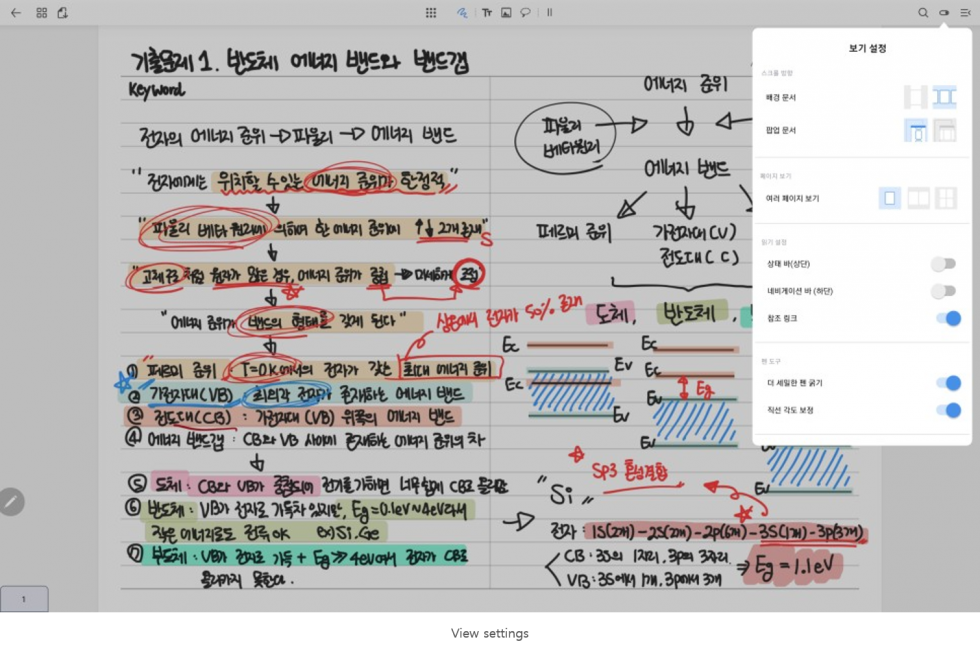 Tr
기출문제 1. 반도체 에너지 밴드와 밴드갭
Keyword
전자의 에너지 준위 → 파울리 → 에너지 밴드
"전자에게는 위치할 수 있는 에너지 준위가 한정적"
"파울리 베타 원리에 의하여 한 에너지 준위에 ↑↓ 2개 존재"
"고체구조처럼 원자가 많은 경우, 에너지 준위가 중첩 →
"에너지 준위가 밴드의 형태를 갖게 된다"
상온에서 전자가 50% 존재
① 페르미 준위 : T=0K에서의 전자가 갖는 최대 에너지 준위
② 가전자대(VB) : 최외각 전자가 존재하는 에너지 밴드
③ 전도대(CB) : 가전자대(VB) 위쪽의 에너지 밴드
④ 에너지 밴드갭 : CB와 VB 사이에 존재하는 에너지 준위의 차
⑤ 도체 : CB와 VB가 중첩되어 전자를 가하면 너무 쉽게 CB로 올라감
⑥ 반도체 : VB가 전자로 가득차 있지만, Eg=0.1eV~4eV라서
작은 에너지로도 전류 OK Ex) Si, Ge
⑦ 부도체 : VB가 전자로 가득 + Eg ≫ 4eV여서 전자가 CB로
올라가지 못한다.
에너지 준위
파울리
베타원리
에너지 밴드
페르미 준위
가전자대(V)
전도대(C)
도체, 반도체,
Ec
Ev
Ec
Ev
Ec
Ec
Eg
Ev
Ev
Ev
SP3 혼성결합
"Si"
전자 : 1S(2개)-2S(2개)-2p(6개)-3S(1개)-3p(3개)
CB : 3S의 1자리, 3p의 3자리
VB : 3S에서 1개, 3p에서 3개
⇒ Eg=1.1eV
보기 설정
스크롤 방향
배경 문서
팝업 문서
페이지 보기
여러 페이지 보기
읽기 설정
상태 바(상단)
네비게이션 바 (하단)
참조 링크
펜 도구
더 세밀한 펜 굵기
직선 각도 보정
1
View settings